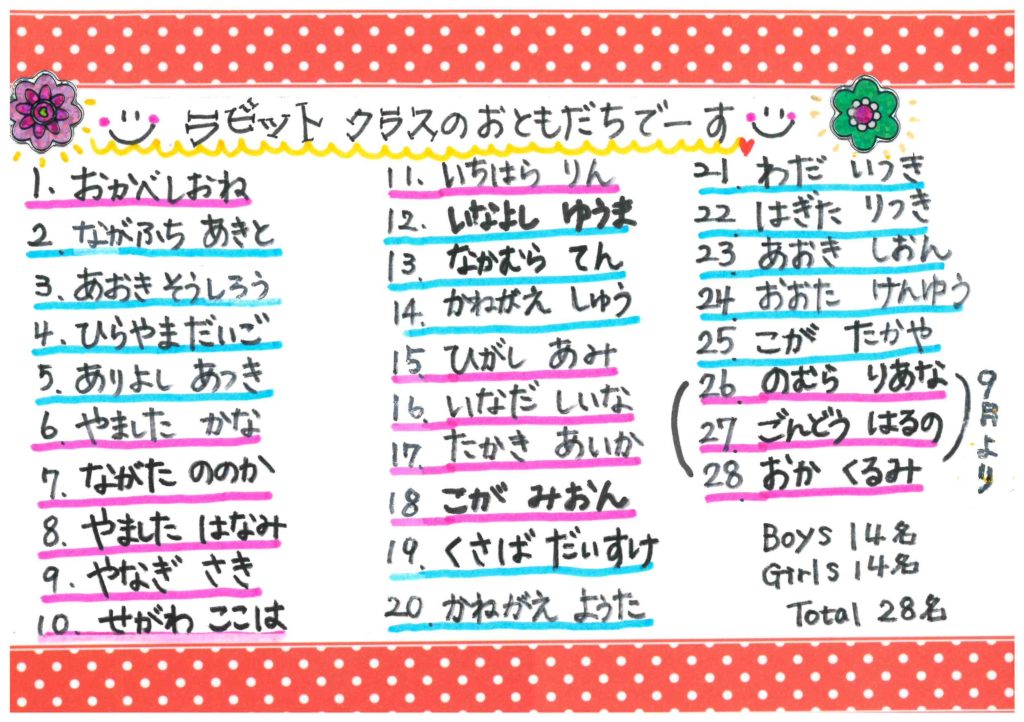 ラビット クラスのおともだちでーす
1. おかべしおね
2. ながふち あきと
3. あおき そうしろう
4. ひらやま だいご
5. ありよし あつき
6. やました かな
7. ながた ののか
8. やました はなみ
9. やなぎ さき
10. せがわ ここは
11. いちはら りん
12. いなよし ゆうま
13. なかむら てん
14. かねがえ しゅう
15 ひがし あみ
16. いなだ しいな
17. たかき あいか
18 こが みおん
19. くさば だいすけ
20 かねがえ ようた
21. わだ いつき
22 はぎた りつき
23 あおき しおん
24 おおた けんゆう
25 こが たかや
26 のむら りあな
27 ごんどう はるの
28 おか くるみ
9月より
Boys 14名
Girls 14名
Total 28名